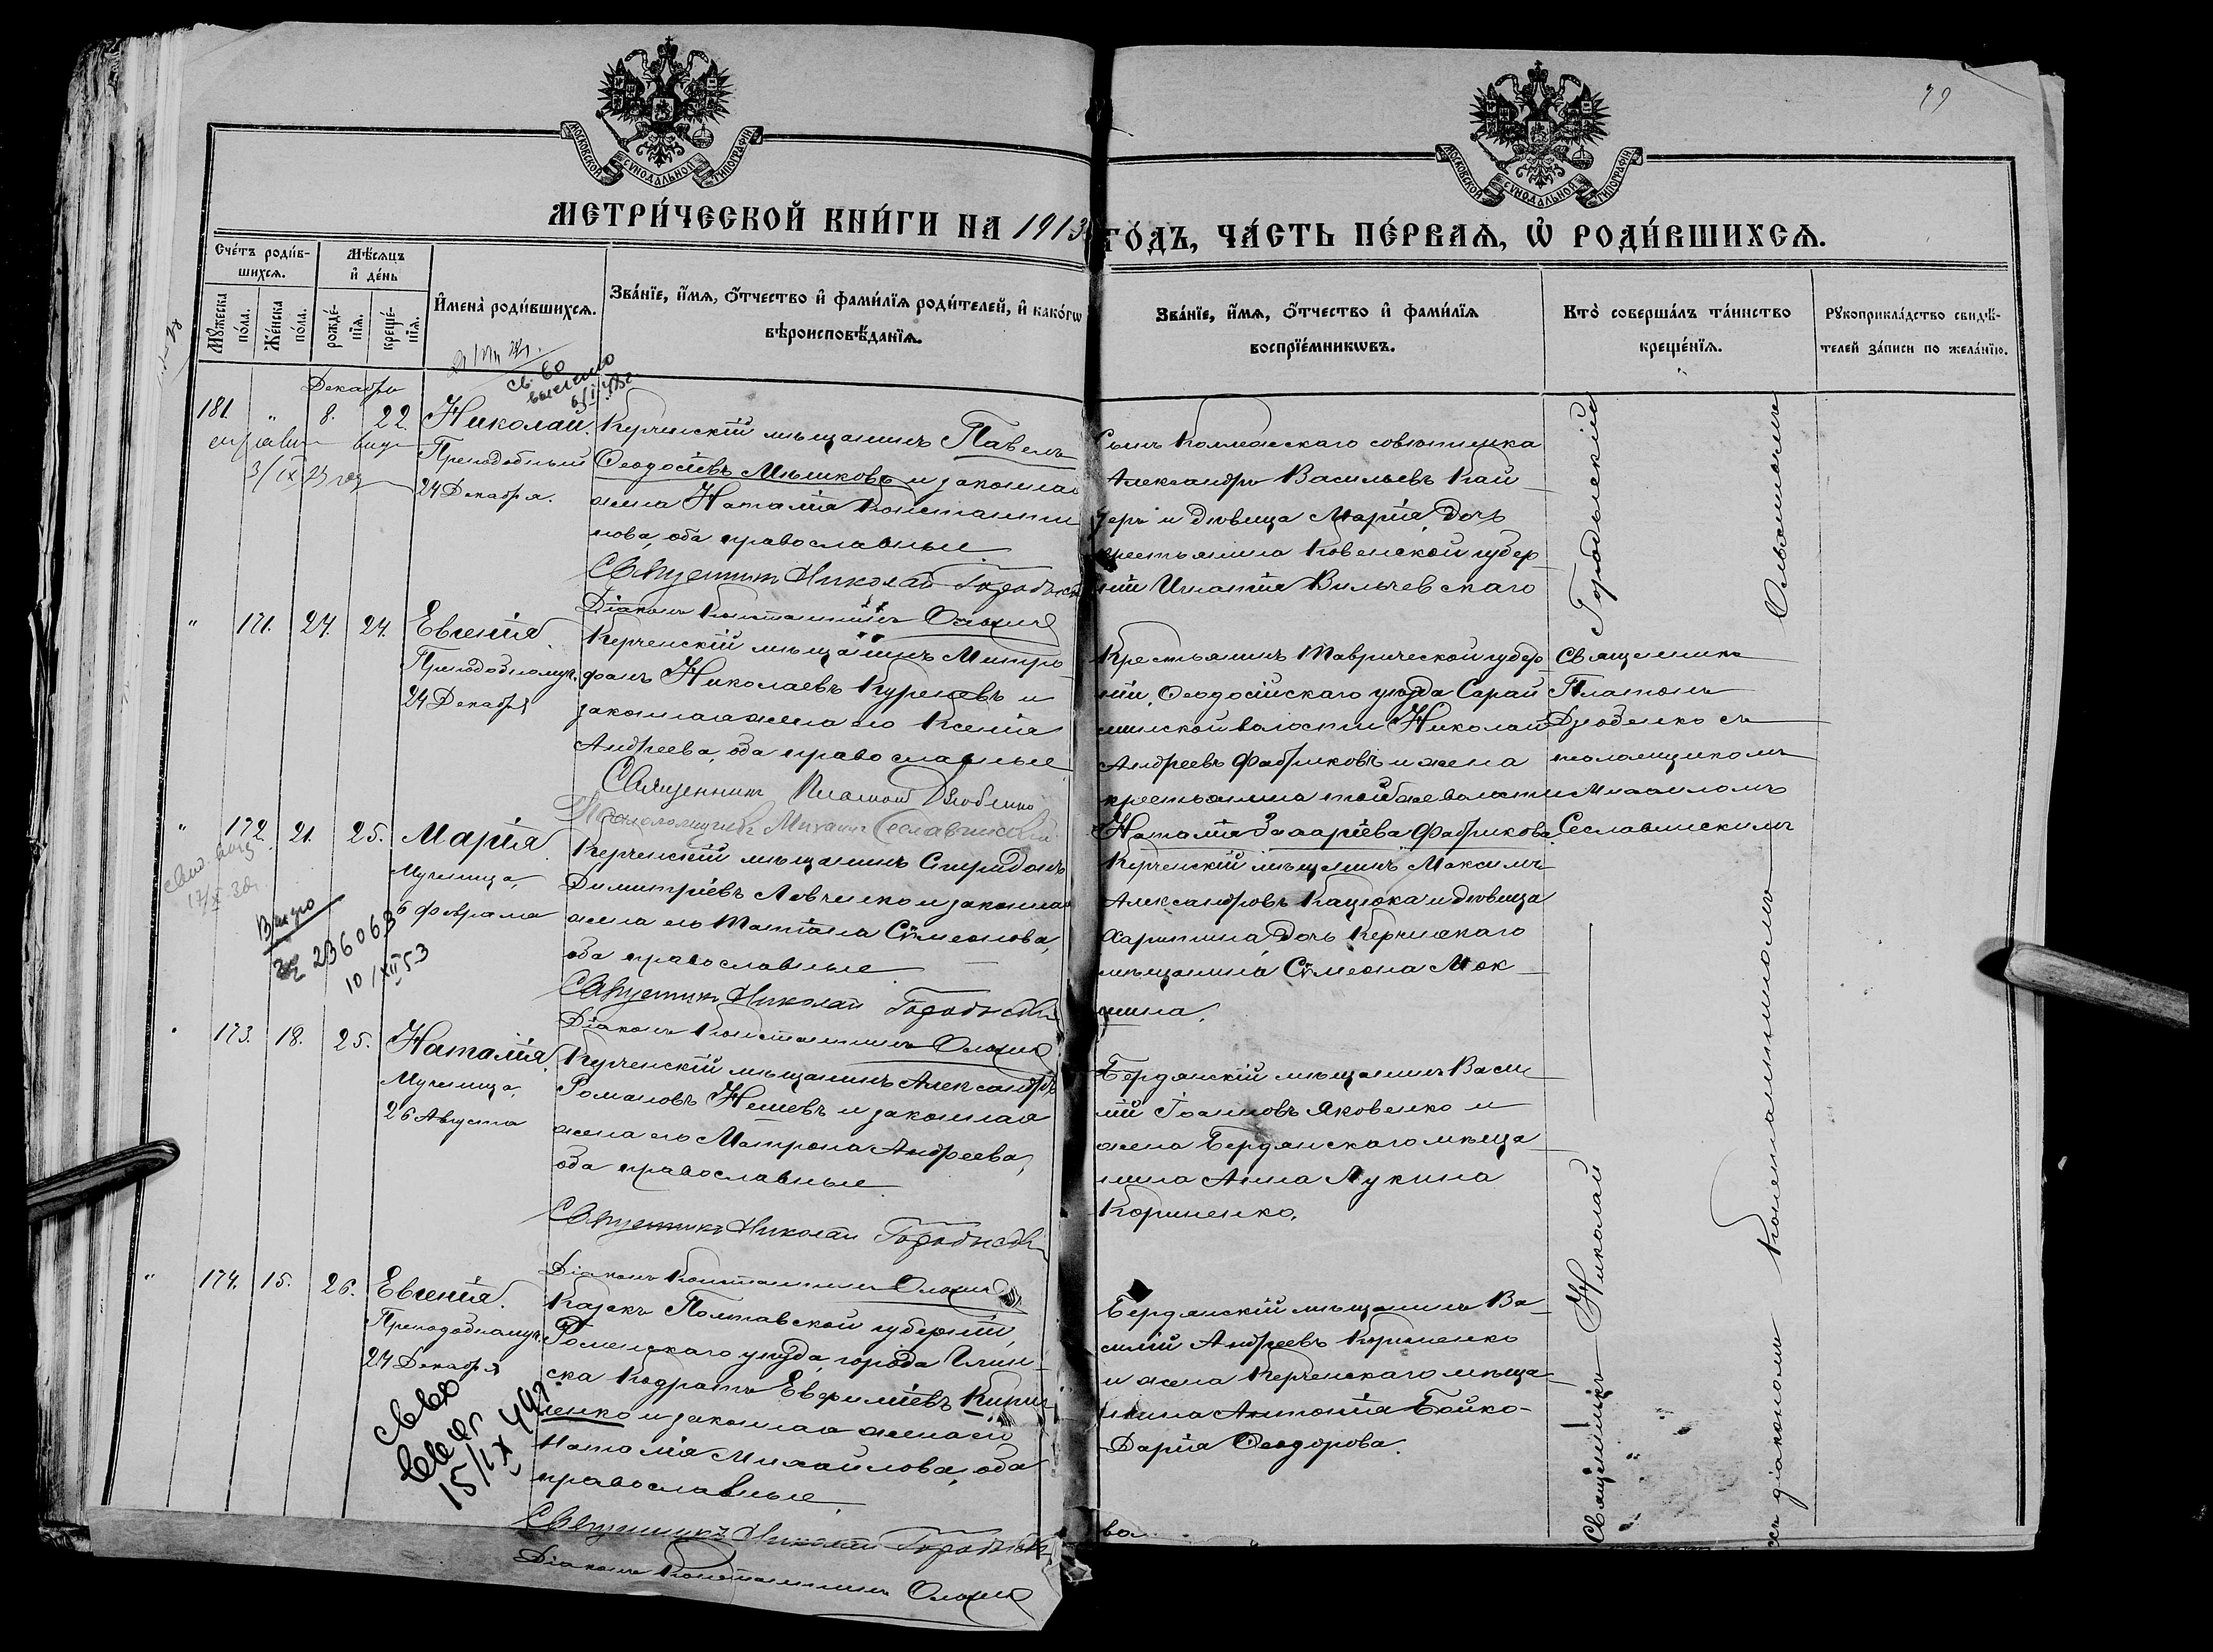 МОСКОВСКОЙ СѴНОДАЛЬНОЙ ТИПОГРАФИИ
МОСКОВСКОЙ СѴНОДАЛЬНОЙ ТИПОГРАФИИ
МЕТРИ́ЧЕСКОЙ КНИ́ГИ НА 1913 ГО́ДЪ, ЧА́СТЬ ПЕ́РВАѦ, Ѡ҆ РОДИ́ВШИХСѦ.
Сче́тъ роди́в-
шихсѧ.
Мꙋ́жеска по́ла.
Же́нска по́ла.
Мѣ́сѧцъ
и҆ де́нь
рожде́-
нїѧ.
креще́-
нїѧ.
И҆мена̀ роди́вшихсѧ.
Зва́нїе, и҆́мѧ, ѻ҆́тчество и҆ фами́лїѧ роди́телей, и҆ како́гѡ
вѣроисповѣ́данїѧ.
Зва́нїе, и҆́мѧ, ѻ҆́тчество и҆ фами́лїѧ
воспрїе́мникѡвъ.
Кто̀ соверша́лъ та́инство
креще́нїѧ.
Рꙋкоприкла́дство свидѣ́-
телей за́писи по жела́нїю.
Декабрь
181. " 8. 22.
Николай.
Преподобный
24 Декабря.
Керченскій мѣщанинъ Павелъ
Ѳеодосіевъ Мѣшковъ и законная
жена Наталія Константи
нова, оба православные
Священникъ Николай
Діаконъ Константинъ
Сынъ Коллежскаго совѣтника
Александръ Васильевъ Кай
зеръ и дѣвица Марія, дочь
крестьянина Ковенской губер
ніи Игнатія Вильчевскаго
" 171. 24. 24.
Евгенія.
Преподобномуч.
24 Декабря
Керченскій мѣщанинъ Митро
фанъ Николаевъ Куреневъ и
законная жена его Ксенія
Андреева, оба православные
Священникъ Платонъ Дзюбенко
Псаломщикъ Михаилъ Сеславинскій
Крестьянинъ Таврической губер
ніи, Ѳеодосійскаго уѣзда Сарай
минской волости Николай
Андреевъ Фабриковъ и жена
крестьянина той же волости
Наталія Захаріева Фабрикова.
Священникъ
Платонъ
Дзюбенко съ
псаломщикомъ
Михаиломъ
Сеславинскимъ
" 172. 21. 25.
Марія.
Мученица,
6 Февраля
236063
10/XII 53
Керченскій мѣщанинъ Спиридонъ
Димитріевъ Левченко и законная
жена его Татіана Сѵмеонова,
оба православные
Священникъ Николай
Діаконъ Константинъ
Керченскій мѣщанинъ Максимъ
Александровъ Кацюка и дѣвица
Харитина дочь Керченскаго
мѣщанина Сѵмеона Мок
шина.
173. 18. 25.
Наталія.
Мученица,
26 Августа
Керченскій мѣщанинъ Александръ
Романовъ Нешевъ и законная
жена его Матрона Андреева,
оба православные
Священникъ Николай
Діаконъ Константинъ
Бердянскій мѣщанинъ Васи
лій Іоанновъ Яковенко и
жена Бердянскаго мѣща
нина Анна Лукина
Кориненко.
" 174. 15. 26.
Евгенія.
Преподобномуч.
24 Декабря
15/IX 49г.
Козакъ Полтавской губерніи,
Роменскаго уѣзда города Глин
ска Кодратъ Евфиміевъ Кири
ленко и законная жена его
Наталія Михайлова, оба
православные
Священникъ Николай
Діаконъ Константинъ
Бердянскій мѣщанинъ Ва
силій Андреевъ Кориненко
и жена Керченскаго мѣща
нина Антонія Бойко
Дарія Ѳеодорова.
Священникъ Николай
съ діакономъ Константиномъ